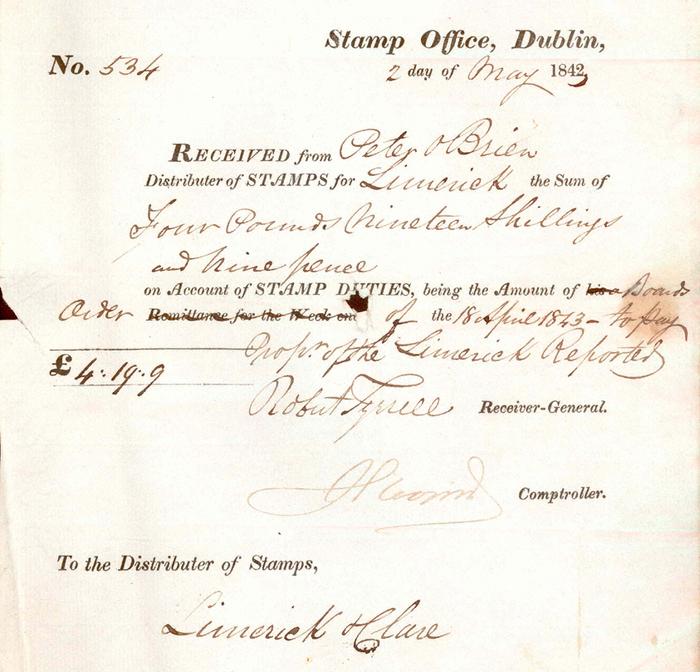 Stamp Office, Dublin,
No. 534
2 day of May 1843
RECEIVED from Peter O'Brien
Distributer of STAMPS for Limerick the Sum of
Four Pounds Nineteen Shillings
and Nine pence
on Account of STAMP DUTIES, being the Amount of his a Boards
Order Remittance for the Week en of the 18 April 1843 - to pay
Propr. of the Limerick Reporter
£ 4:19.9
Robert Tyrrell Receiver-General.
Comptroller.
To the Distributer of Stamps,
Limerick & Clare